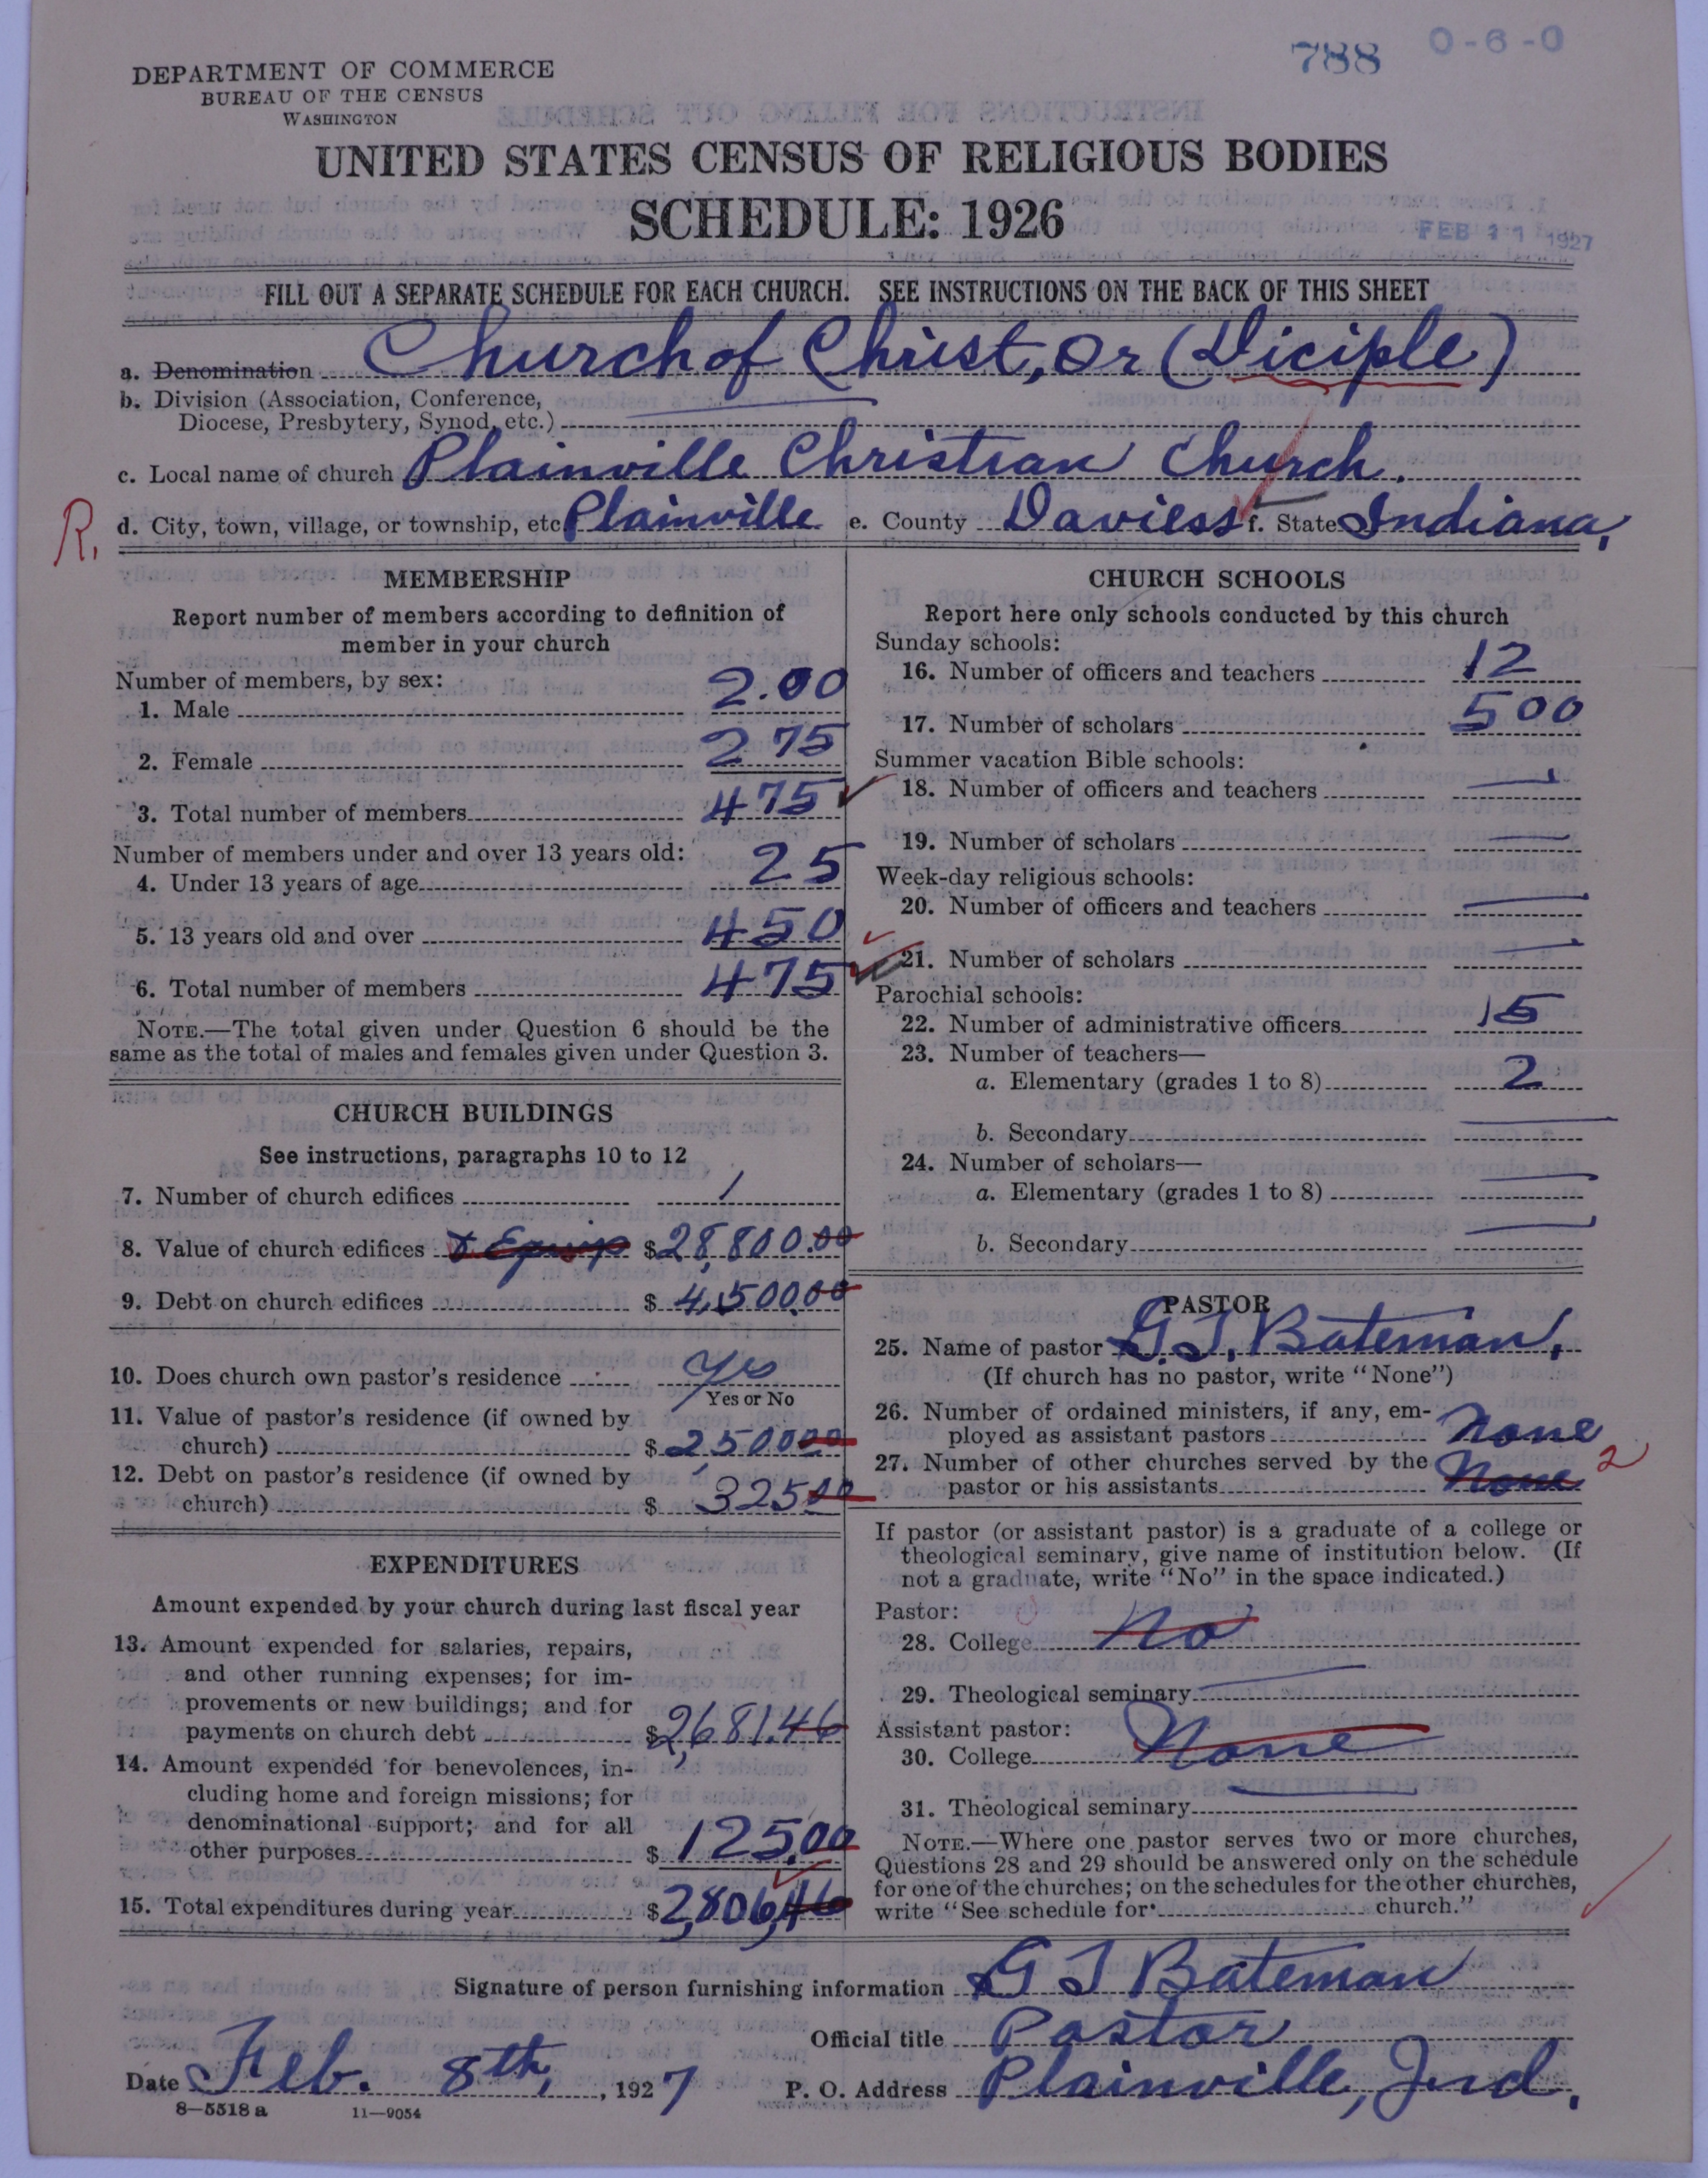 788 0-6-0
DEPARTMENT OF COMMERCE
BUREAU OF THE CENSUS
WASHINGTON
UNITED STATES CENSUS OF RELIGIOUS BODIES
SCHEDULE: 1926
FEB 11 1927
FILL OUT A SEPARATE SCHEDULE FOR EACH CHURCH. SEE INSTRUCTIONS ON THE BACK OF THIS SHEET
a. Denomination Church of Christ, or (Diciple)
b. Division (Association, Conference,
Diocese, Presbytery, Synod, etc.)
c. Local name of church Plainville Christian Church.
R. d. City, town, village, or township, etc Plainville e. County Daviess f. State Indiana,
MEMBERSHIP
Report number of members according to definition of
member in your church
Number of members, by sex:
1. Male 2.00
2. Female 275
3. Total number of members 475
Number of members under and over 13 years old:
4. Under 13 years of age 25
5. 13 years old and over 450
6. Total number of members 475
NOTE.—The total given under Question 6 should be the
same as the total of males and females given under Question 3.
CHURCH BUILDINGS
See instructions, paragraphs 10 to 12
7. Number of church edifices 1
8. Value of church edifices & Equip $28,800.00
9. Debt on church edifices $4,500.00
10. Does church own pastor's residence Yes
Yes or No
11. Value of pastor's residence (if owned by
church) $2,50000
12. Debt on pastor's residence (if owned by
church) $32500
EXPENDITURES
Amount expended by your church during last fiscal year
13. Amount expended for salaries, repairs,
and other running expenses; for im-
provements or new buildings; and for
payments on church debt $2,681.46
14. Amount expended for benevolences, in-
cluding home and foreign missions; for
denominational support; and for all
other purposes $125.00
15. Total expenditures during year $2,806,46
CHURCH SCHOOLS
Report here only schools conducted by this church
Sunday schools:
16. Number of officers and teachers 12
17. Number of scholars 500
Summer vacation Bible schools:
18. Number of officers and teachers —
19. Number of scholars —
Week-day religious schools:
20. Number of officers and teachers —
21. Number of scholars —
Parochial schools:
22. Number of administrative officers 15
23. Number of teachers—
a. Elementary (grades 1 to 8) 2
b. Secondary —
24. Number of scholars—
a. Elementary (grades 1 to 8) —
b. Secondary —
PASTOR
25. Name of pastor G.T. Bateman,
(If church has no pastor, write "None")
26. Number of ordained ministers, if any, em-
ployed as assistant pastors None
27. Number of other churches served by the
pastor or his assistants None 2
If pastor (or assistant pastor) is a graduate of a college or
theological seminary, give name of institution below. (If
not a graduate, write "No" in the space indicated.)
Pastor:
28. College No
29. Theological seminary —
Assistant pastor:
30. College None
31. Theological seminary —
NOTE.—Where one pastor serves two or more churches,
Questions 28 and 29 should be answered only on the schedule
for one of the churches; on the schedules for the other churches,
write "See schedule for church."
Signature of person furnishing information G T Bateman
Official title Pastor
Date Feb. 8th, , 1927 P. O. Address Plainville, Ind.
8—5518 a 11—9054